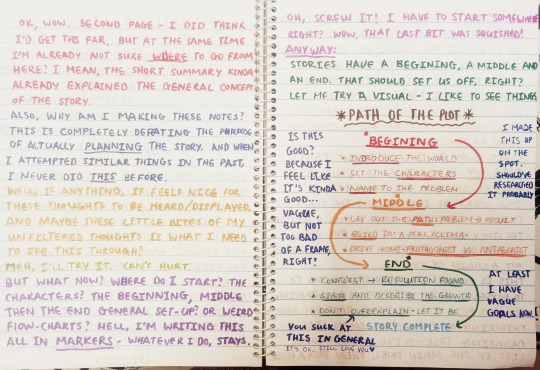 OK, WOW. SECOND PAGE - I DID THINK
I'D GET THIS FAR, BUT AT THE SAME TIME
I'M ALREADY NOT SURE WHERE TO GO FROM
HERE! I MEAN, THE SHORT SUMMARY KINDA
ALREADY EXPLAINED THE GENERAL CONCEPT
OF THE STORY.
ALSO, WHY AM I MAKING THESE NOTES?
THIS IS COMPLETELY DEFATING THE PURPOSE
OF ACTUALLY PLANNING THE STORY. AND WHEN
I ATTEMPTED SIMILAR THINGS IN THE PAST,
I NEVER DID THIS BEFORE.
WELL, IF ANYTHING, IF FEELS NICE FOR
THESE THOUGHTS TO BE HEARD/DISPLAYED.
AND MAYBE THESE LITTLE BITES OF MY
UNFILTERED THOUGHTS IS WHAT I NEED
TO SEE THIS THROUGH?
MEH, I'LL TRY IT. CAN'T HURT.
BUT WHAT NOW? WHERE DO I START? THE
CHARACTERS? THE BEGINNING, MIDDLE
THEN THE END GENERAL SET-UP? OR WEIRD
FLOW-CHARTS? HELL, I'M WRITING THIS
ALL IN MARKERS - WHATEVER I DO, STAYS.
OH, SCREW IT! I HAVE TO START SOMEWHERE
RIGHT? WOW, THAT LAST BIT WAS SQUISHED!
ANYWAY:
STORIES HAVE A BEGINING, A MIDDLE AND
AN END. THAT SHOULD SET US OFF, RIGHT?
LET ME TRY A VISUAL - I LIKE TO SEE THINGS
*PATH OF THE PLOT*
IS THIS
GOOD?
BECAUSE I
FEEL LIKE
IT'S KINDA
GOOD...
VAGUE,
BUT NOT
TOO BAD
OF A FRAME,
RIGHT?
BEGINING
* INTRODUCE THE WORLD
* SET THE CHARACTERS
* NAME TO THE PROBLEM
MIDDLE
* LAY OUT THE PATH PROBLEM → RESULT
* BUILD TO A REAL/CLIMAX
* DRIVE HOME PROTAGONIST V/S ANTAGONIST
END
* CONFLICT → RESOLUTION FOUND
* STATE AND DESCRIBE THE GROWTH
* DON'T OVEREXPLAIN - LET IT BE
STORY COMPLETE
I MADE
THIS UP
ON THE
SPOT.
SHOULD'VE
RESEARCHED
IT PROBABLY
AT LEAST
I HAVE
VAGUE
GOALS NOW!
YOU SUCK AT
THIS IN GENERAL
IT'S OK, STILL LOVE YOU